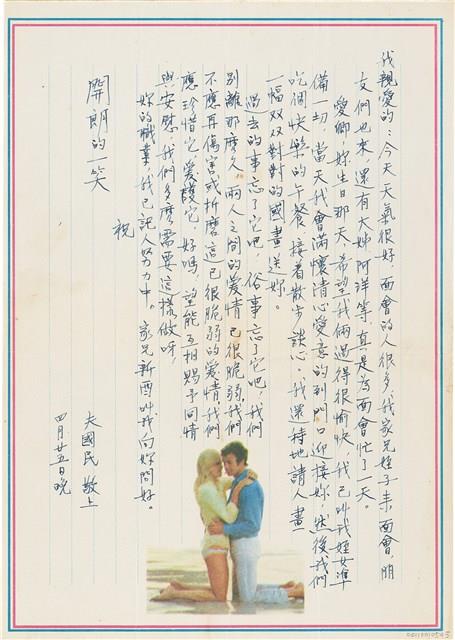 我親愛的：今天天氣很好，面會的人很多，我家兄姪子來面會，朋
友們也來，還有大姊阿洋等，真是為面會忙了一天。
愛卿，妳生日那天，希望我倆過得很愉快，我已叫我姪女準
備一切，當天我會滿懷清心愛意的到門口迎接妳，然後我們
吃個快樂的午餐，接着散步談心。我還特地請人畫
一幅双双對對的國畫送妳。
過去的事忘了它吧，俗事忘了它吧，我們
別離那麼久，兩人之間的愛情已很脆弱，我們
不應再傷害或折磨這已很脆弱的愛情，我們
應珍惜它，愛護它，好嗎，望能互相賜予回情
與安慰，我們多麼需要這樣做呀，
妳的職業，我已託人努力中。家兄新酉叫我向妳問好。
祝
開朗的一笑
夫國民 敬上
四月廿五日晚